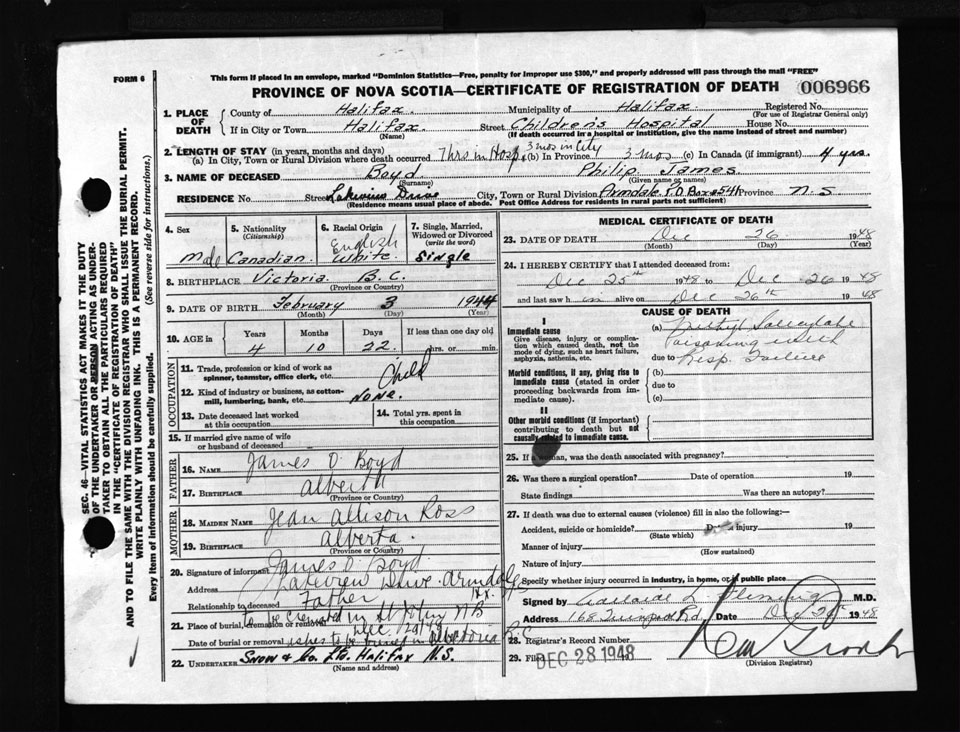 FORM 6
This form if placed in an envelope, marked "Dominion Statistics—Free, penalty for improper use $300," and properly addressed will pass through the mail "FREE"
PROVINCE OF NOVA SCOTIA—CERTIFICATE OF REGISTRATION OF DEATH 006966
1. PLACE OF DEATH
County of Halifax. Municipality of Halifax Registered No.
(For use of Registrar General only)
If in City or Town Halifax. Street Children's Hospital House No.
(Name) (If death occurred in a hospital or institution, give the name instead of street and number)
2. LENGTH OF STAY (in years, months and days)
(a) In City, Town or Rural Division where death occurred 7 hrs in Hosp. 3 mos in City (b) In Province 3 mos (c) In Canada (if immigrant) 4 yrs.
3. NAME OF DECEASED Boyd Philip James
(Surname) (Given name or names)
RESIDENCE No. Street Lakeview Drive City, Town or Rural Division Armdale P.O. Box 254 Province N.S
(Residence means usual place of abode. Post Office Address for residents in rural parts not sufficient)
4. Sex
Male
5. Nationality
(Citizenship)
Canadian
6. Racial Origin
English
White.
7. Single, Married, Widowed or Divorced
(write the word)
Single
8. BIRTHPLACE Victoria B.C.
(Province or Country)
9. DATE OF BIRTH February 3 1944
(Month) (Day) (Year)
10. AGE in Years Months Days If less than one day old
4 10 22 hrs. or min.
OCCUPATION
11. Trade, profession or kind of work as spinner, teamster, office clerk, etc. Child
12. Kind of industry or business, as cotton-mill, lumbering, bank, etc. None.
13. Date deceased last worked at this occupation
14. Total yrs. spent in this occupation
15. If married give name of wife or husband of deceased
FATHER
16. NAME James O. Boyd
17. BIRTHPLACE Alberta
(Province or Country)
MOTHER
18. MAIDEN NAME Jean Allison Ross
19. BIRTHPLACE Alberta.
(Province or Country)
20. Signature of informant James O. Boyd
Address Lakeview Drive Armdale
Relationship to deceased Father
21. Place of burial, cremation or removal to be cremated in St John NB
Date of burial or removal Dec. 29/48 ashes to be buried in Victoria B.C
22. UNDERTAKER Snow & Co. Ltd. Halifax N.S.
(Name and address)
MEDICAL CERTIFICATE OF DEATH
23. DATE OF DEATH Dec 26 1948
(Month) (Day) (Year)
24. I HEREBY CERTIFY that I attended deceased from:
Dec 25th 1948 to Dec 26 1948
and last saw him alive on Dec 26th 1948
CAUSE OF DEATH
I
Immediate cause
Give disease, injury or complication which caused death, not the mode of dying, such as heart failure, asphyxia, asthenia, etc.
(a) Methyl Salicylate Poisoning with
due to Resp. Failure
Morbid conditions, if any, giving rise to immediate cause (stated in order proceeding backwards from immediate cause).
(b)
due to
(c)
II
Other morbid conditions (if important) contributing to death but not causally related to immediate cause.
25. If a woman, was the death associated with pregnancy?
26. Was there a surgical operation? Date of operation 19
State findings Was there an autopsy?
27. If death was due to external causes (violence) fill in also the following:—
Accident, suicide or homicide? Date of injury 19
(State which)
Manner of injury
(How sustained)
Nature of injury
Specify whether injury occurred in industry, in home, or in public place
Signed by L. Fleming M.D.
Address 168 Date Dec 1948
28. Registrar's Record Number
29. Filed DEC 28 1948
(Division Registrar)
SEC. 46—VITAL STATISTICS ACT MAKES IT THE DUTY OF THE UNDERTAKER OR PERSON ACTING AS UNDERTAKER TO OBTAIN ALL THE PARTICULARS REQUIRED IN THE "CERTIFICATE OF REGISTRATION OF DEATH" AND TO FILE THE SAME WITH THE DIVISION REGISTRAR WHO SHALL ISSUE THE BURIAL PERMIT.
WRITE PLAINLY WITH UNFADING INK. THIS IS A PERMANENT RECORD.
Every item of information should be carefully supplied. (See reverse side for instructions.)